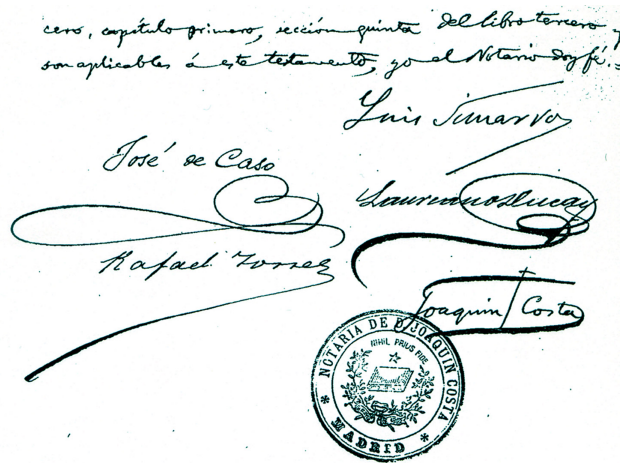 cero, capítulo primero, sección quinta del libro tercero
son aplicables á este testamento, yo el Notario doy fé.
Luis Simarro
José de Caso
Laureano Ducay
Rafael Torres
Joaquin Costa
NOTARIA DE D. JOAQUIN COSTA
NIHIL PRIUS FIDE
MADRID